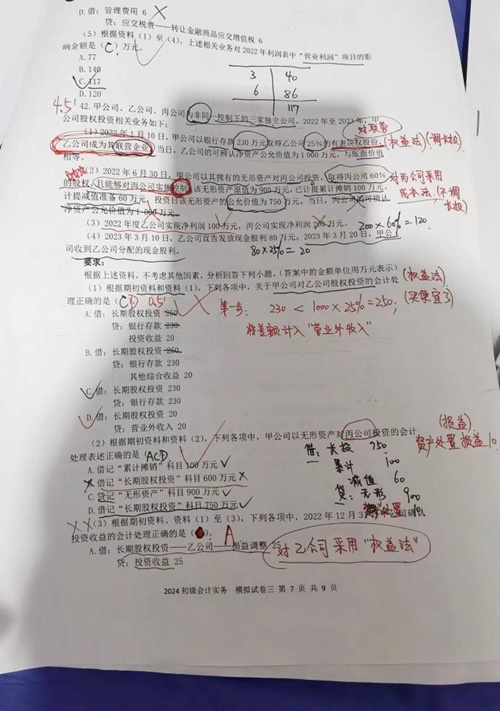 D.借：管理费用 6
贷：应交税费——转让金融商品应交增值税 6
（5）根据资料（1）至（4），上述相关业务对 2022 年利润表中“营业利润”项目的影
响金额是（C）万元。
A. 77
B. 140
C. 117
D. 120
3 40
6 86
117
4.5' 42. 甲公司、乙公司、丙公司为非同一控制下的三家独立公司。2022 年至 2023 年，甲
公司股权投资相关业务如下：
（1）2022 年 1 月 10 日，甲公司以银行存款 230 万元取得乙公司 25%的有表决权股份，
乙公司成为其联营企业。当日，乙公司的可辨认净资产公允价值为 1 000 万元，与账面价值
相等。
（2）2022 年 6 月 30 日，甲公司以其拥有的无形资产对丙公司投资，取得丙公司 60%
的股权，且能够对丙公司实施控制。该无形资产原值为 900 万元，已计提累计摊销 100 万元，
计提减值准备 60 万元，投资日该无形资产的公允价值为 750 万元，当日，丙公司的可辨认
净资产公允价值为 1 000 万元。
对丙公司采用
成本法
（3）2022 年度乙公司实现净利润 100 万元，丙公司实现净利润 200 万元。
200×60%=120
（4）2023 年 3 月 10 日，乙公司宣告发放现金股利 80 万元，2023 年 3 月 20 日，甲公
司收到乙公司分配的现金股利。
80×25%=20
要求：
根据上述资料，不考虑其他因素，分析回答下列小题。（答案中的金额单位用万元表示）
（1）根据期初资料和资料（1），下列各项中，关于甲公司对乙公司股权投资的会计处
理正确的是（CD
(权益法)
(买便宜了)
第一步： 230 < 1000×25%=250，
将差额计入“营业外收入”
A.借：长期股权投资 250
贷：银行存款 230
投资收益 20
B.借：长期股权投资 250
贷：银行存款 230
其他综合收益 20
C.借：长期股权投资 230
贷：银行存款 230
D.借：长期股权投资 20
贷：营业外收入 20
（2）根据期初资料和资料（2），下列各项中，甲公司以无形资产对丙公司投资的会计
处理表述正确的是（ACD
A.借记“累计摊销”科目 100 万元
B.借记“长期股权投资”科目 600 万元
C.贷记“无形资产”科目 900 万元
D.借记“长期股权投资”科目 750 万元
借：长投 750
累计 100
减值 60
贷：无形 900
(损益)
资产处置损益10
（3）根据期初资料、资料（1）至（3），下列各项中，2022 年 12 月 3
投资收益的会计处理正确的是（ A
A.借：长期股权投资——乙公司——损益调整 25
贷：投资收益 25
对乙公司采用“权益法”
2024 初级会计实务 模拟试卷三 第 7 页 共 9 页